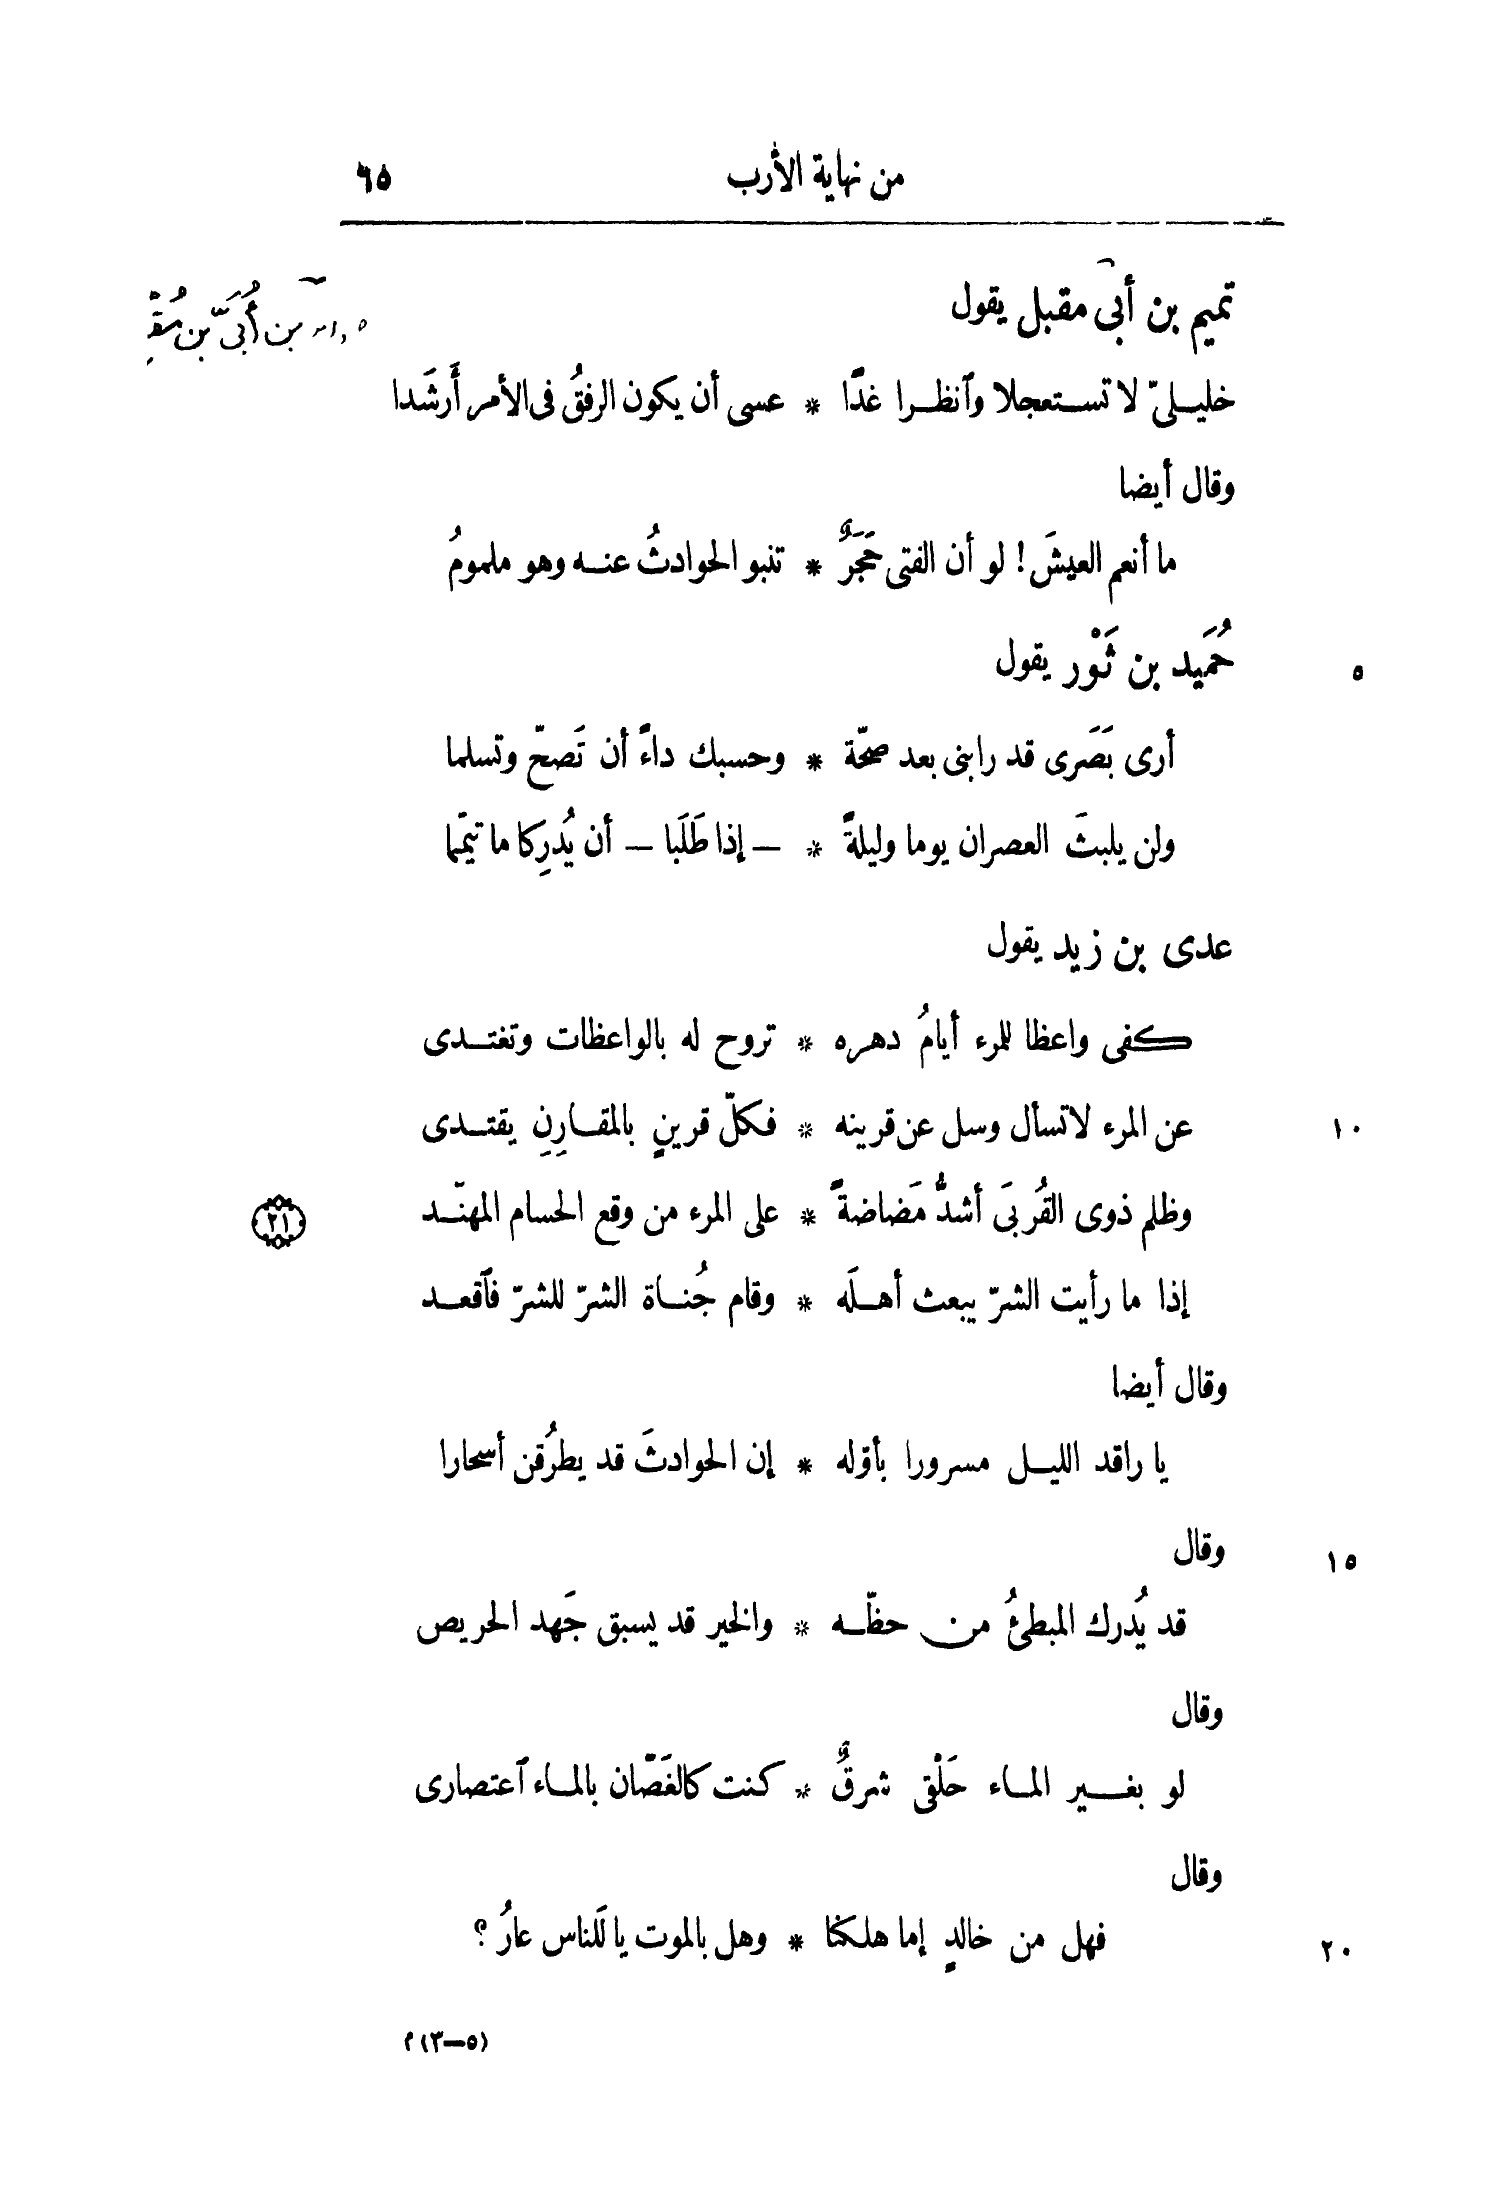 من نهاية الأرب ٦٥
تميم بن أبى مقبل يقول
بن أُبَىّ بن
خليلىّ لا تستعجلا وٱنظرا غدًا * عسى أن يكون الرفقُ فى الأمر أَرشَدا
وقال أيضا
ما أنعم العيشَ! لو أن الفتى حَجَرٌ * تنبو الحوادثُ عنه وهو ملمومُ
٥ حُمَيد بن ثَوْر يقول
أرى بَصَرى قد رابنى بعد صحّة * وحسبك داءً أن تَصحّ وتسلما
ولن يلبثَ العصران يوما وليلةً * — إذا طَلَبا — أن يُدرِكا ما تيمّما
عدى بن زيد يقول
كفى واعظا للمرء أيامُ دهره * تروح له بالواعظات وتغتدى
١٠ عن المرء لا تسأل وسل عن قرينه * فكلّ قرينٍ بالمقارِنِ يقتدى
وظلم ذوى القُربَى أشدُّ مَضاضةً * على المرء من وقع الحسام المهنّد
٢١
إذا ما رأيت الشرّ يبعث أهلَه * وقام جُناة الشرّ للشرّ فٱقعد
وقال أيضا
يا راقد الليل مسرورا بأوّله * إن الحوادثَ قد يطرُقن أسحارا
١٥ وقال
قد يُدرك المبطئُ من حظّه * والخير قد يسبق جَهد الحريص
وقال
لو بغير الماء حَلْقى شرقٌ * كنت كالغَصّان بالماء ٱعتصارى
وقال
٢٠ فهل من خالدٍ إما هلكنا * وهل بالموت يا لَلناس عارُ؟
(٥—٣) م